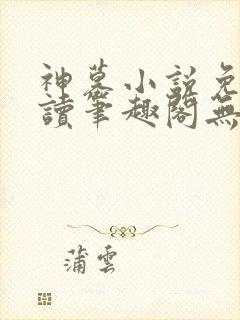 神墓小説免
讀筆趣閣無
蒲雲